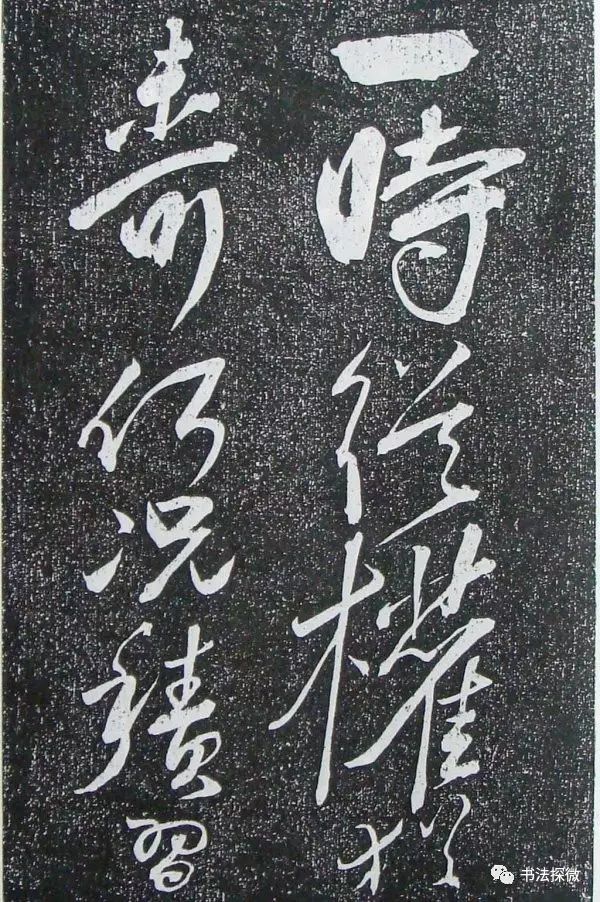 一時從權
未可何況積習
书法探微